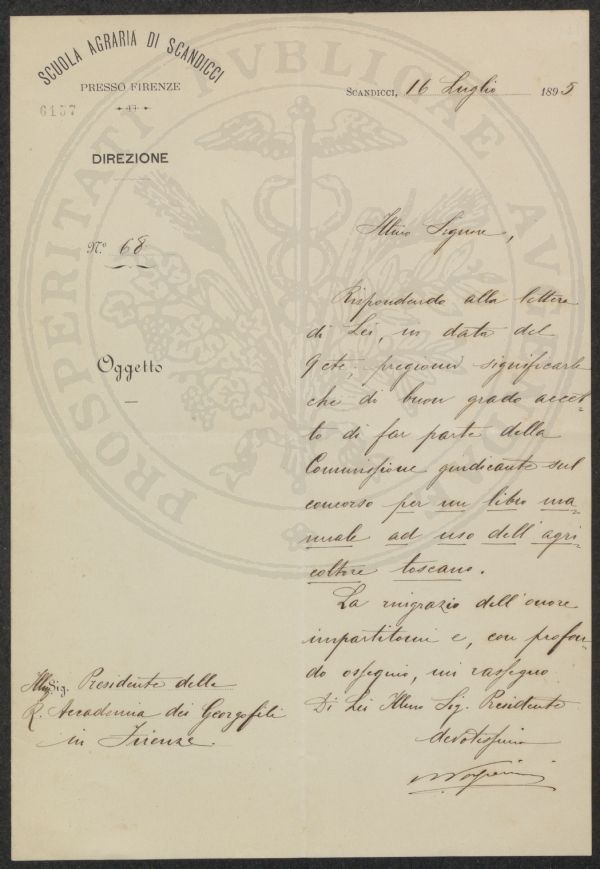 SCUOLA AGRARIA DI SCANDICCI
PRESSO FIRENZE
6157
DIREZIONE
SCANDICCI, 16 Luglio 1895
N.º 68
Oggetto
Illmo Signore,
Rispondendo alla lettera
di Lei, in data del
9 cte, pregiomi significarle
che di buon grado accet-
to di far parte della
Commissione giudicante sul
concorso per un libro ma-
nuale ad uso dell'agri
coltore toscano.
La ringrazio dell'onore
impartitomi e, con profon-
do ossequio, mi rassegno
Di Lei Illmo Sig. Presidente
devotissimo
Illmo Sig. Presidente della
R. Accademia dei Georgofili
in Firenze.
PROSPERITATI PVBLICAE